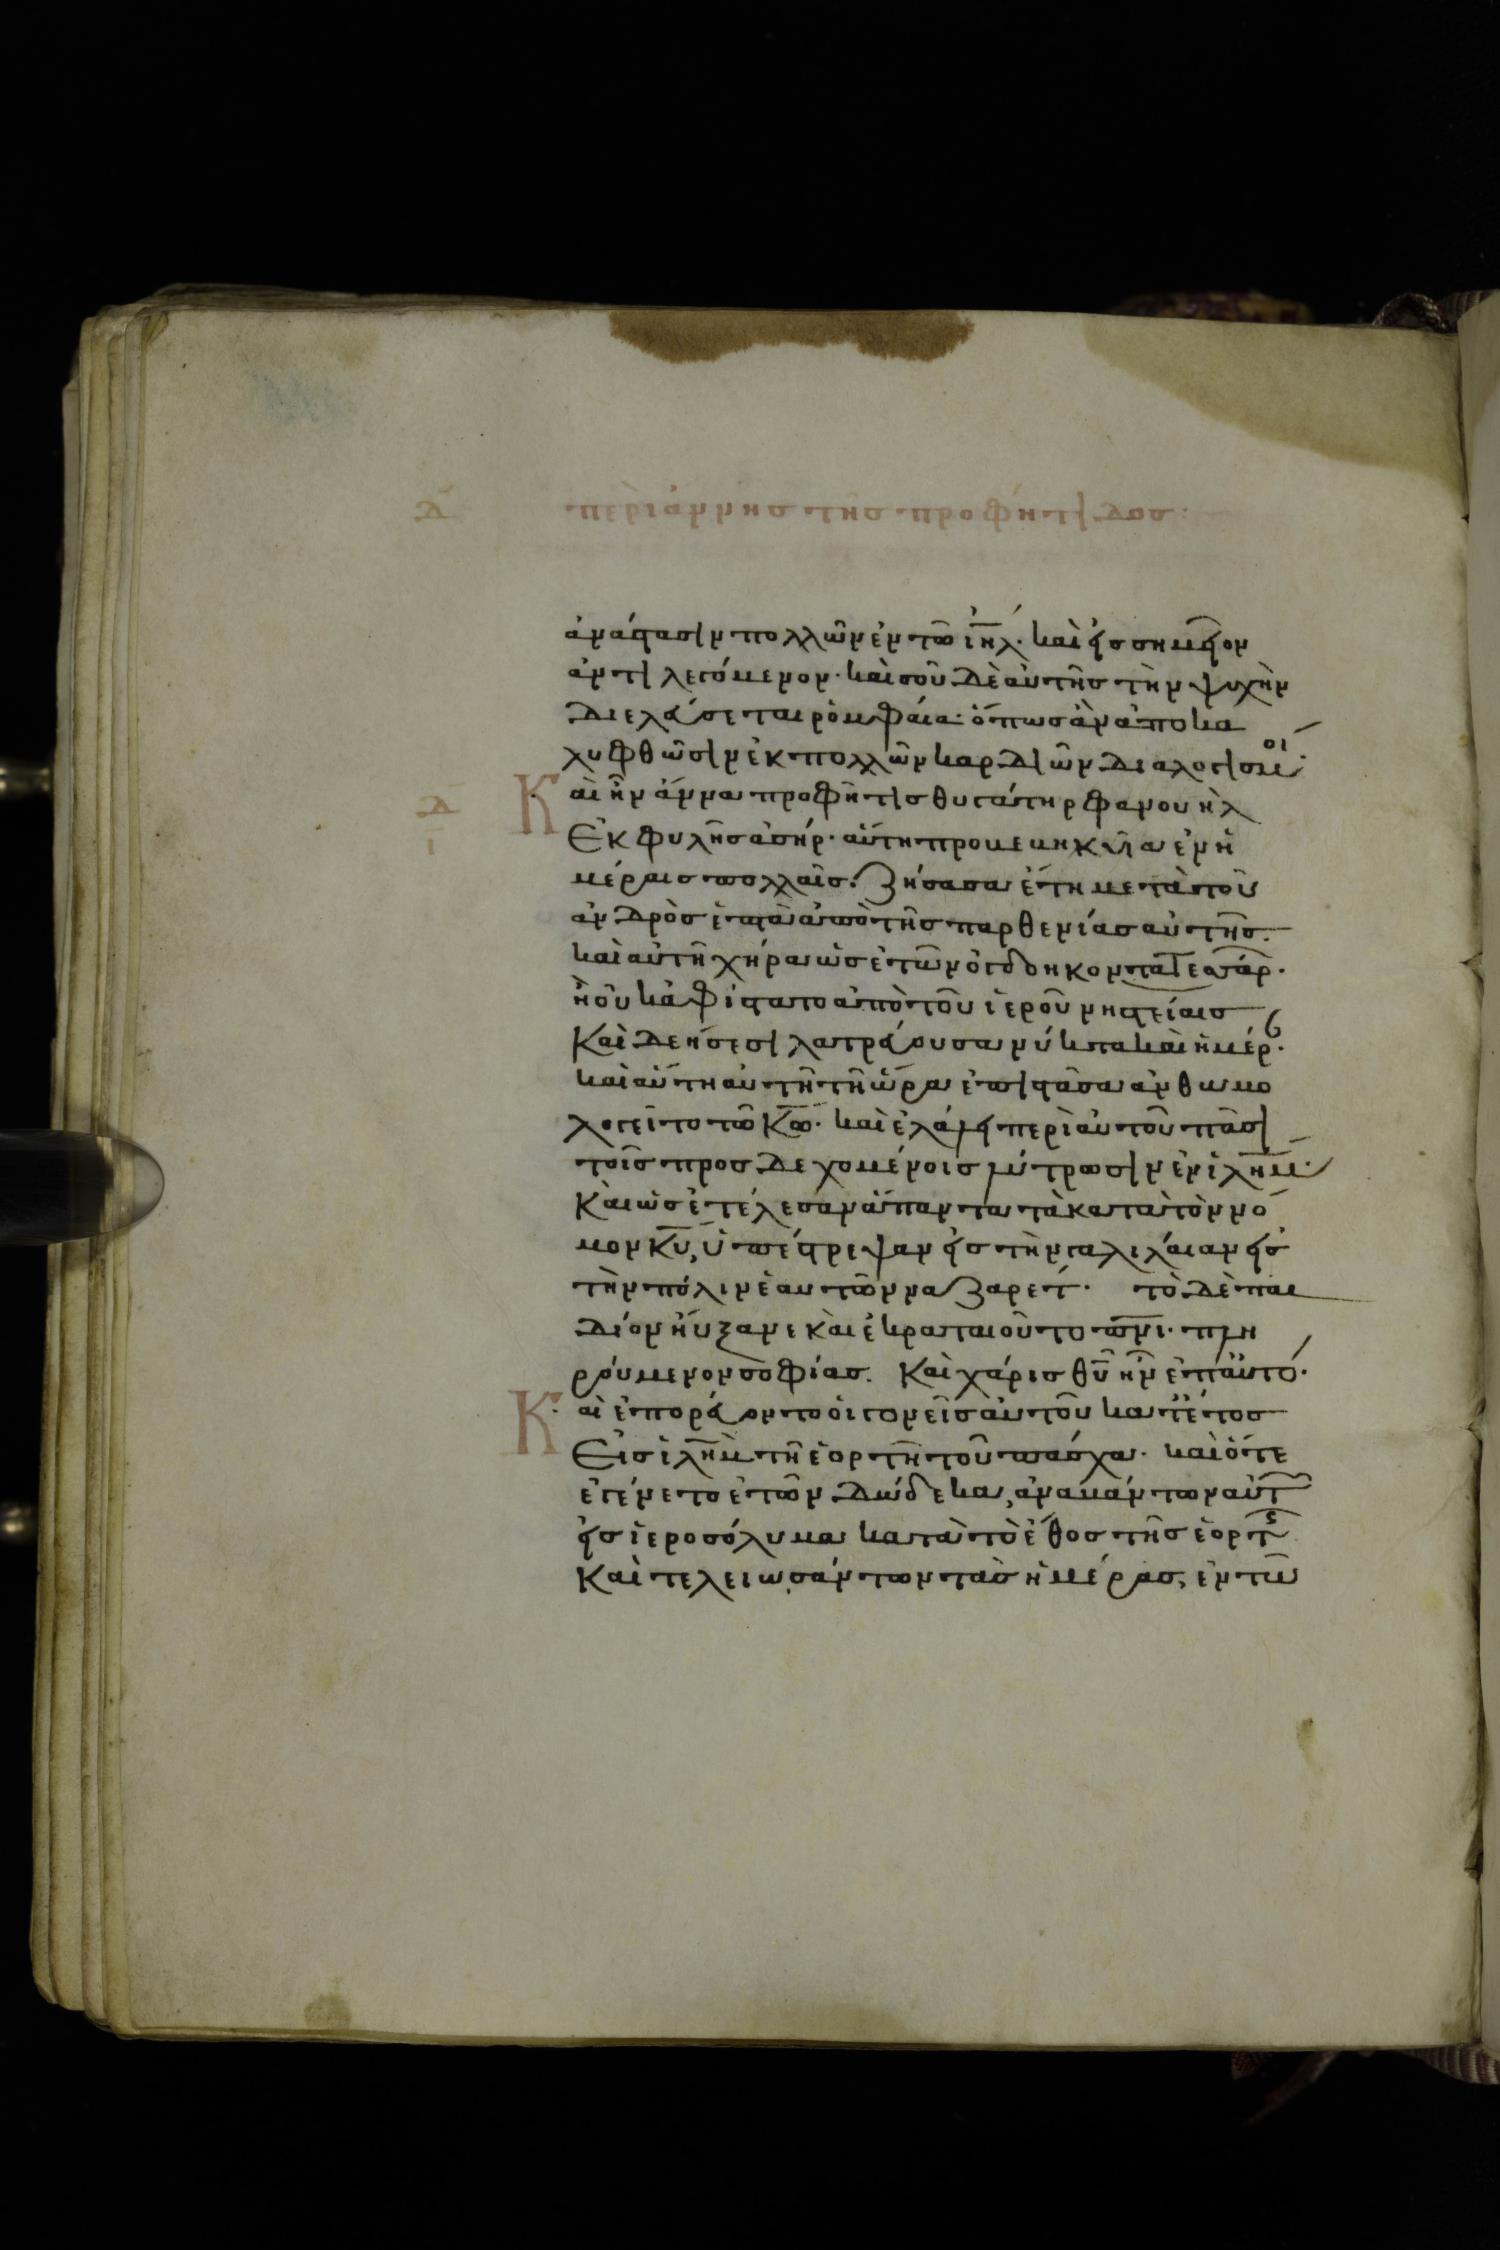 Δ περὶ ἄννης τῆς προφήτιδος·
ἀνάστασιν πολλῶν ἐν τῶ ἰηλ· καὶ εἰς σημεῖον
ἀντιλεγόμενον· καὶ σοῦ δὲ αὐτῆς τὴν ψυχὴν
διελεύσεται ῥομφαία· ὅπως ἂν ἀποκα
λυφθῶσιν ἐκ πολλῶν καρδιῶν διαλογισμοί·
Δ Καὶ ἦν ἄννα προφῆτις θυγάτηρ φανουὴλ
Ι ἐκ φυλῆς ἀσήρ· αὕτη προβεβηκυῖα ἐν ἡ
μέραις πολλαῖς· ζήσασα ἔτη μετὰ τοῦ
ἀνδρὸς ἑπτὰ ἀπὸ τῆς παρθενίας αὐτῆς·
καὶ αὐτὴ χήρα ὡς ἐτῶν ὀγδοηκοντατεσσάρ·
ἣ οὐκ ἀφίστατο ἀπὸ τοῦ ἱεροῦ νηστείαις
καὶ δεήσεσι λατρεύουσα νύκτα καὶ ἡμέρ·
καὶ αὕτη αὐτῆ τῆ ὥρα ἐπιστᾶσα ἀνθωμο
λογεῖτο τῶ κω· καὶ ἐλάλει περὶ αὐτοῦ πᾶσι
τοῖς προσδεχομένοις λύτρωσιν ἐν ἰλημ·
καὶ ὡς ἐτέλεσαν ἅπαντα τὰ κατὰ τὸν νό
μον κυ, ὑπέστρεψαν εἰς τὴν γαλιλαίαν εἰς
τὴν πόλιν ἑαυτῶν ναζαρέτ· τὸ δὲ παι
δίον ηὔξανε καὶ ἐκραταιοῦτο πνι· πλη
ρούμενον σοφίας· καὶ χάρις θυ ἦν ἐπ' αὐτό·
Καὶ ἐπορεύοντο οἱ γονεῖς αὐτοῦ κατ' ἔτος
εἰς ἰλημ τῆ ἑορτῆ τοῦ πάσχα· καὶ ὅτε
ἐγένετο ἐτῶν δώδεκα, ἀναβάντων αὐτ
εἰς ἱεροσόλυμα κατὰ τὸ ἔθος τῆς ἑορτῆς
καὶ τελειωσάντων τὰς ἡμέρας, ἐν τῶ